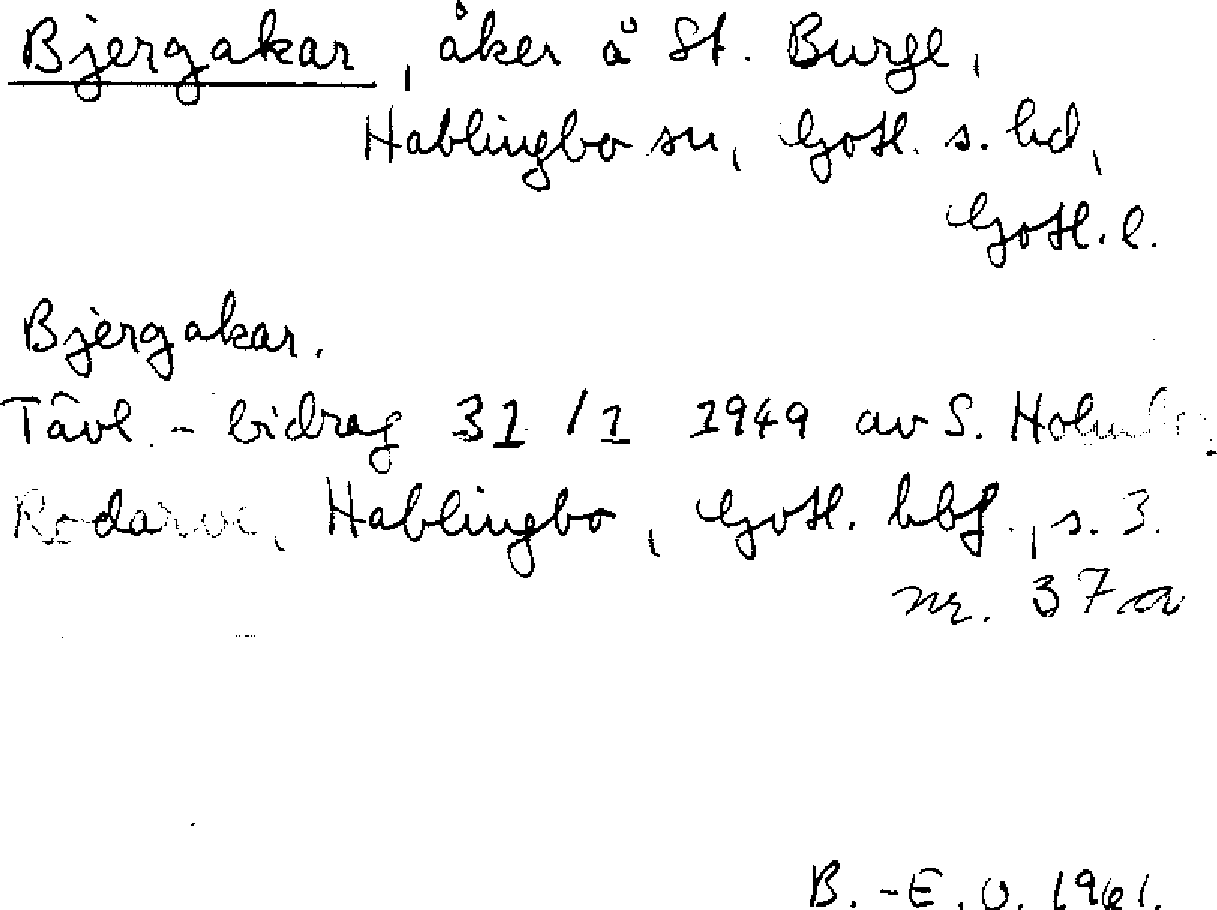 Bjergakar, åker å St. Burge,
Hablingbo sn, Gotl. s. hd,
Gotl. l.
Bjergakar.
Tävl.-bidrag 31/1 1949 av S.
Rodarve, Hablingbo, Gotl. hbf., s. 3.
nr. 37a
B.-E. U. 1961.